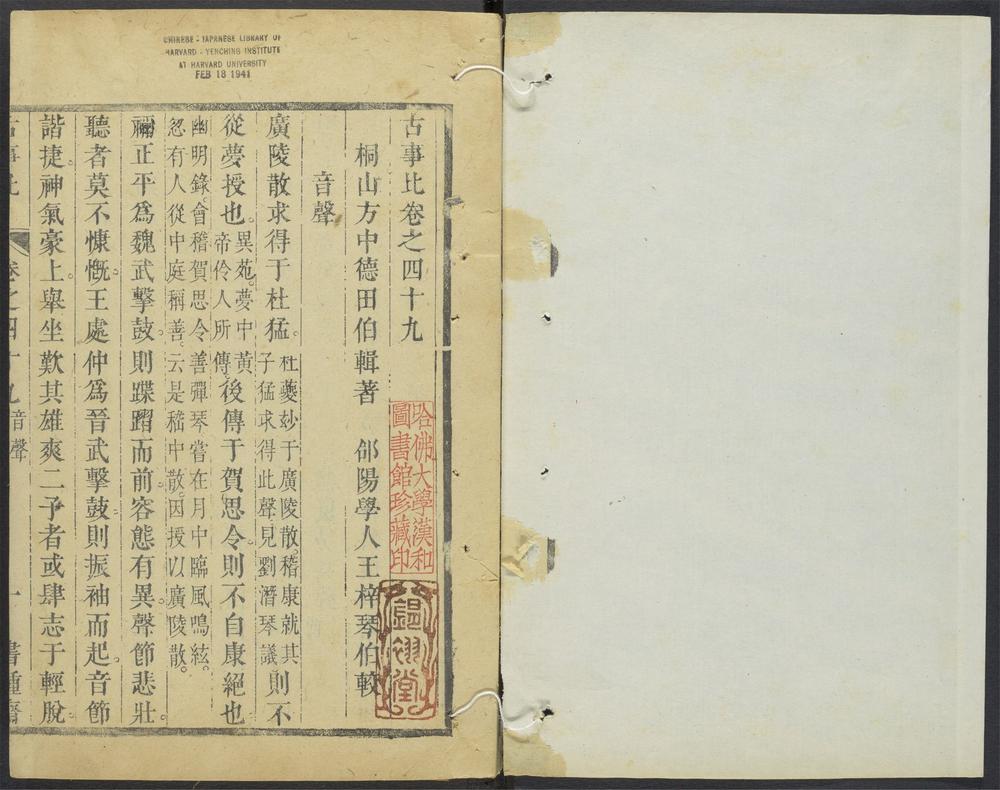 CHINESE - JAPANESE LIBRARY OF
HARVARD - YENCHING INSTITUTE
AT HARVARD UNIVERSITY
FEB 18 1941
古事比卷之四十九
桐山方中德田伯輯著　郃陽學人王梓琴伯較
哈佛大學漢和
圖書館珍藏印
音聲
廣陵散求得于杜猛。杜夔妙于廣陵散。嵇康就其
子猛求得此聲見劉潛琴議則不
從夢授也。異苑。夢中黃
帝伶人所傳。後傳于賀思令。則不自康絕也
幽明錄。會稽賀思令善彈琴嘗在月中臨風鳴絃。
忽有人從中庭稱善。云是嵇中散。因授以廣陵散。
禰正平爲魏武擊鼓。則蹀躧而前。容態有異。聲節悲壯。
聽者莫不慷慨。王處仲爲晉武擊鼓。則振袖而起。音節
諧捷。神氣豪上。舉坐歎其雄爽二予者或肆志于輕脫
古事比 卷之四十九 音聲 一 書種齋